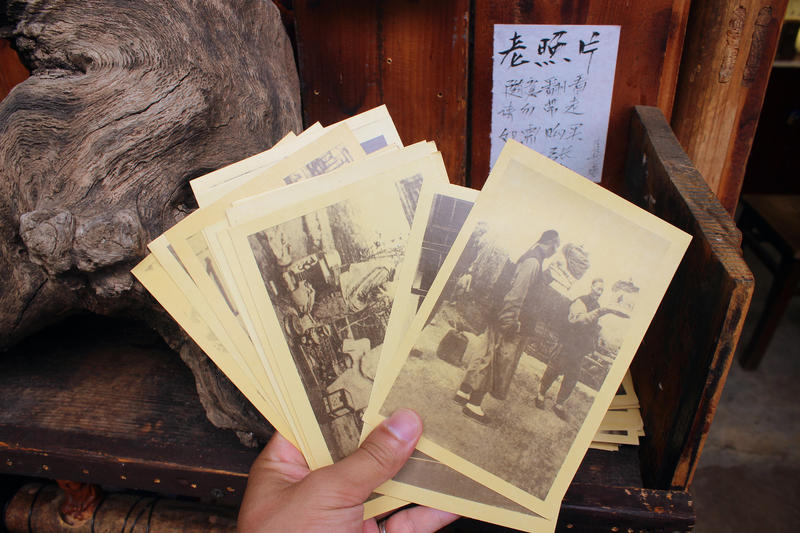 老照片
随意翻看
请勿带走
如需购买